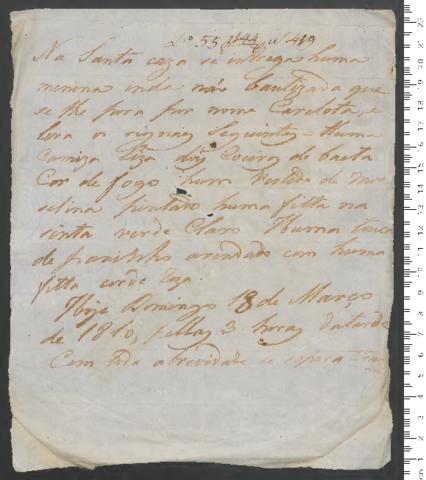 Lº. 55 f 144 nº 419
Na Santa caza se entrega huma
menina inda não bautizada que
se lhe pora por nome Carelota, e
leva os signaes seguintes = Huma
Camiza liza dois Coeiros de baeta
Cor de fogo hum vestido de mor
selina pintado huma fitta na
sinta verde Claro Huma touca
de paninho arendado com huma
fitta corde Roza
Hoje Domingo 18 de Março
de 1810, pellas 3 horas datarde
Com toda abrevidade se espera